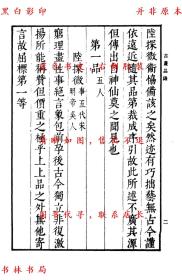 黑白影印 并非原本
古畫品錄 二
陸探微衛協備該之矣然迹有巧拙藝無古今謹
依遠近隨其品第裁成序引故此所述不廣其源
但傳出自神仙莫之聞見也
第一品 五人
陸探微 事五代宋明帝吳人
窮理盡性事絕言象包前孕後古今獨立非復激
揚所能稱贊但價重之極乎上上品之外其他寄
言故屈標第一等
书林书局